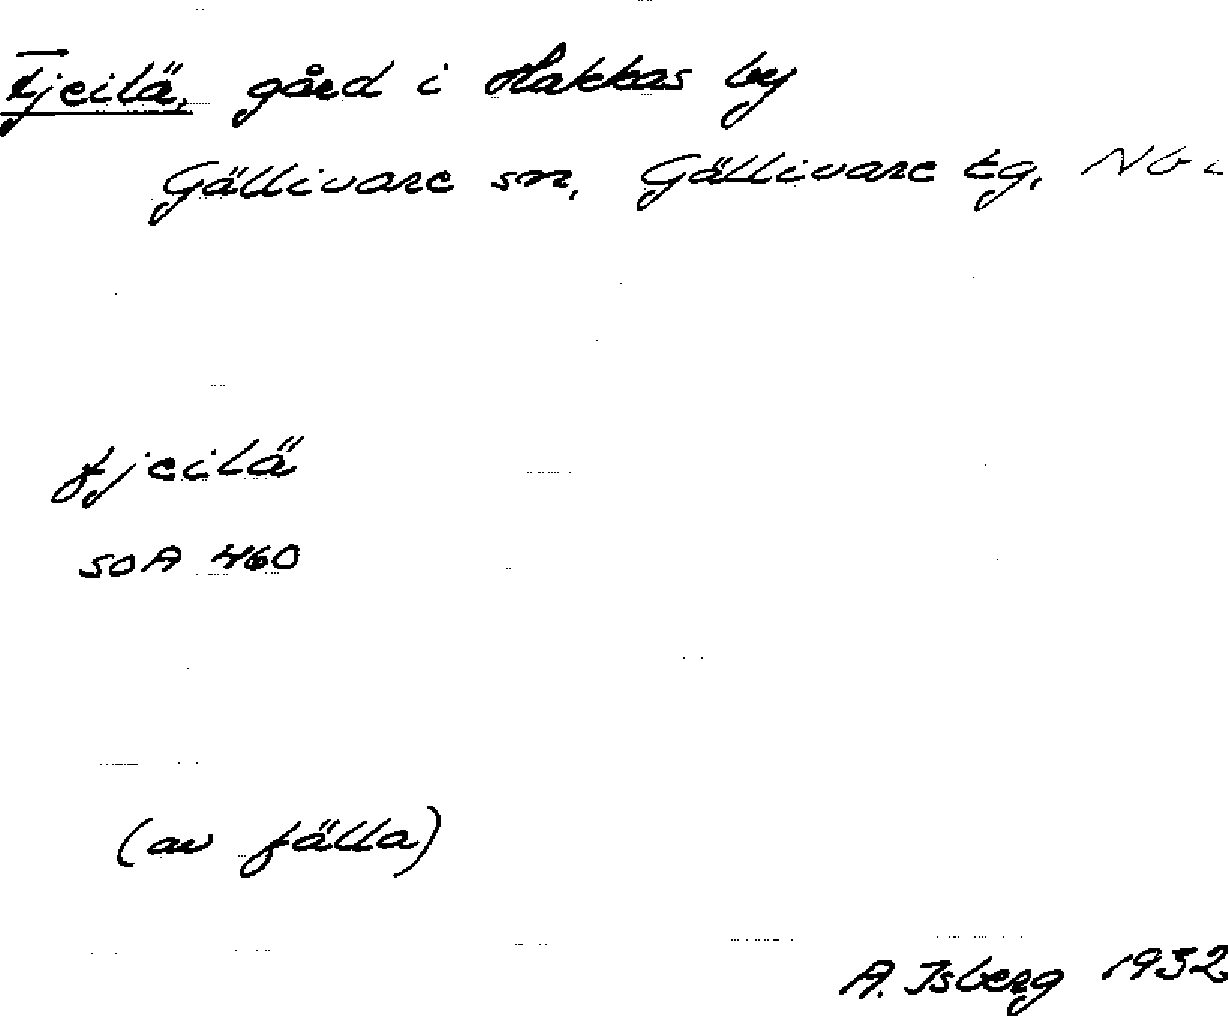 Fjeilä, gård i Hakkas by
Gällivare sn, Gällivare tg, Nb.
fjeilä
SOA 460
(av fälla)
A. Isberg 1932